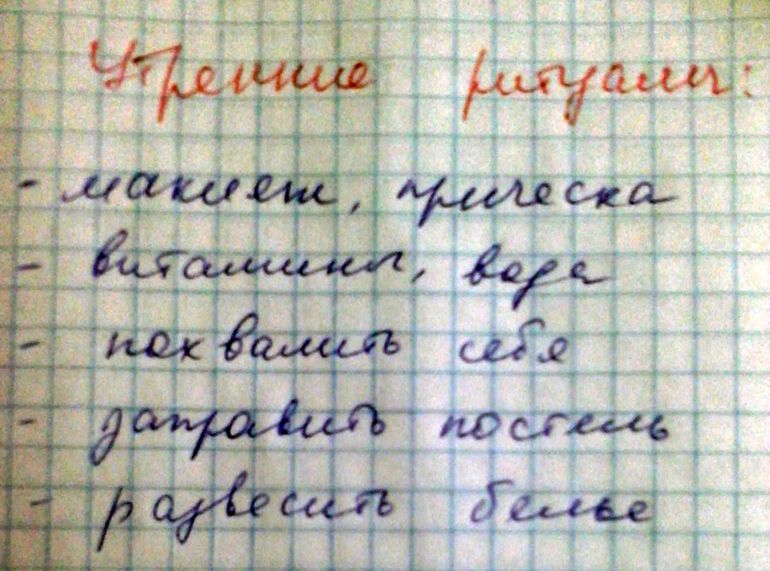 Утренние ритуалы:
- макияж, прическа
- витамины, вода
- похвалить себя
- заправить постель
- развесить белье